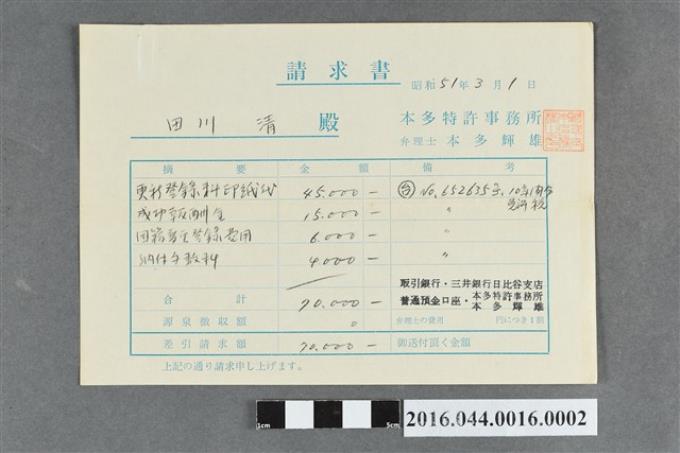 請求書
昭和 51年 3月 1日
田川 清 殿
本多特許事務所
弁理士 本多輝雄
摘要 金額 備考
更新登録料印紙代 45.000 - No.652635号、10年
成功報酬金 15.000 - 〃
登録費用 6.000 - 〃
納付手数料 4000 - 〃
取引銀行・三井銀行日比谷支店
普通預金口座・本多特許事務所
本多輝雄
合計 70.000 -
源泉徴収額 0 弁理士の費用 円につき1割
差引請求額 70.000 - 御送付頂く金額
上記の通り請求申し上げます。
1cm 5cm
2016.044.0016.0002